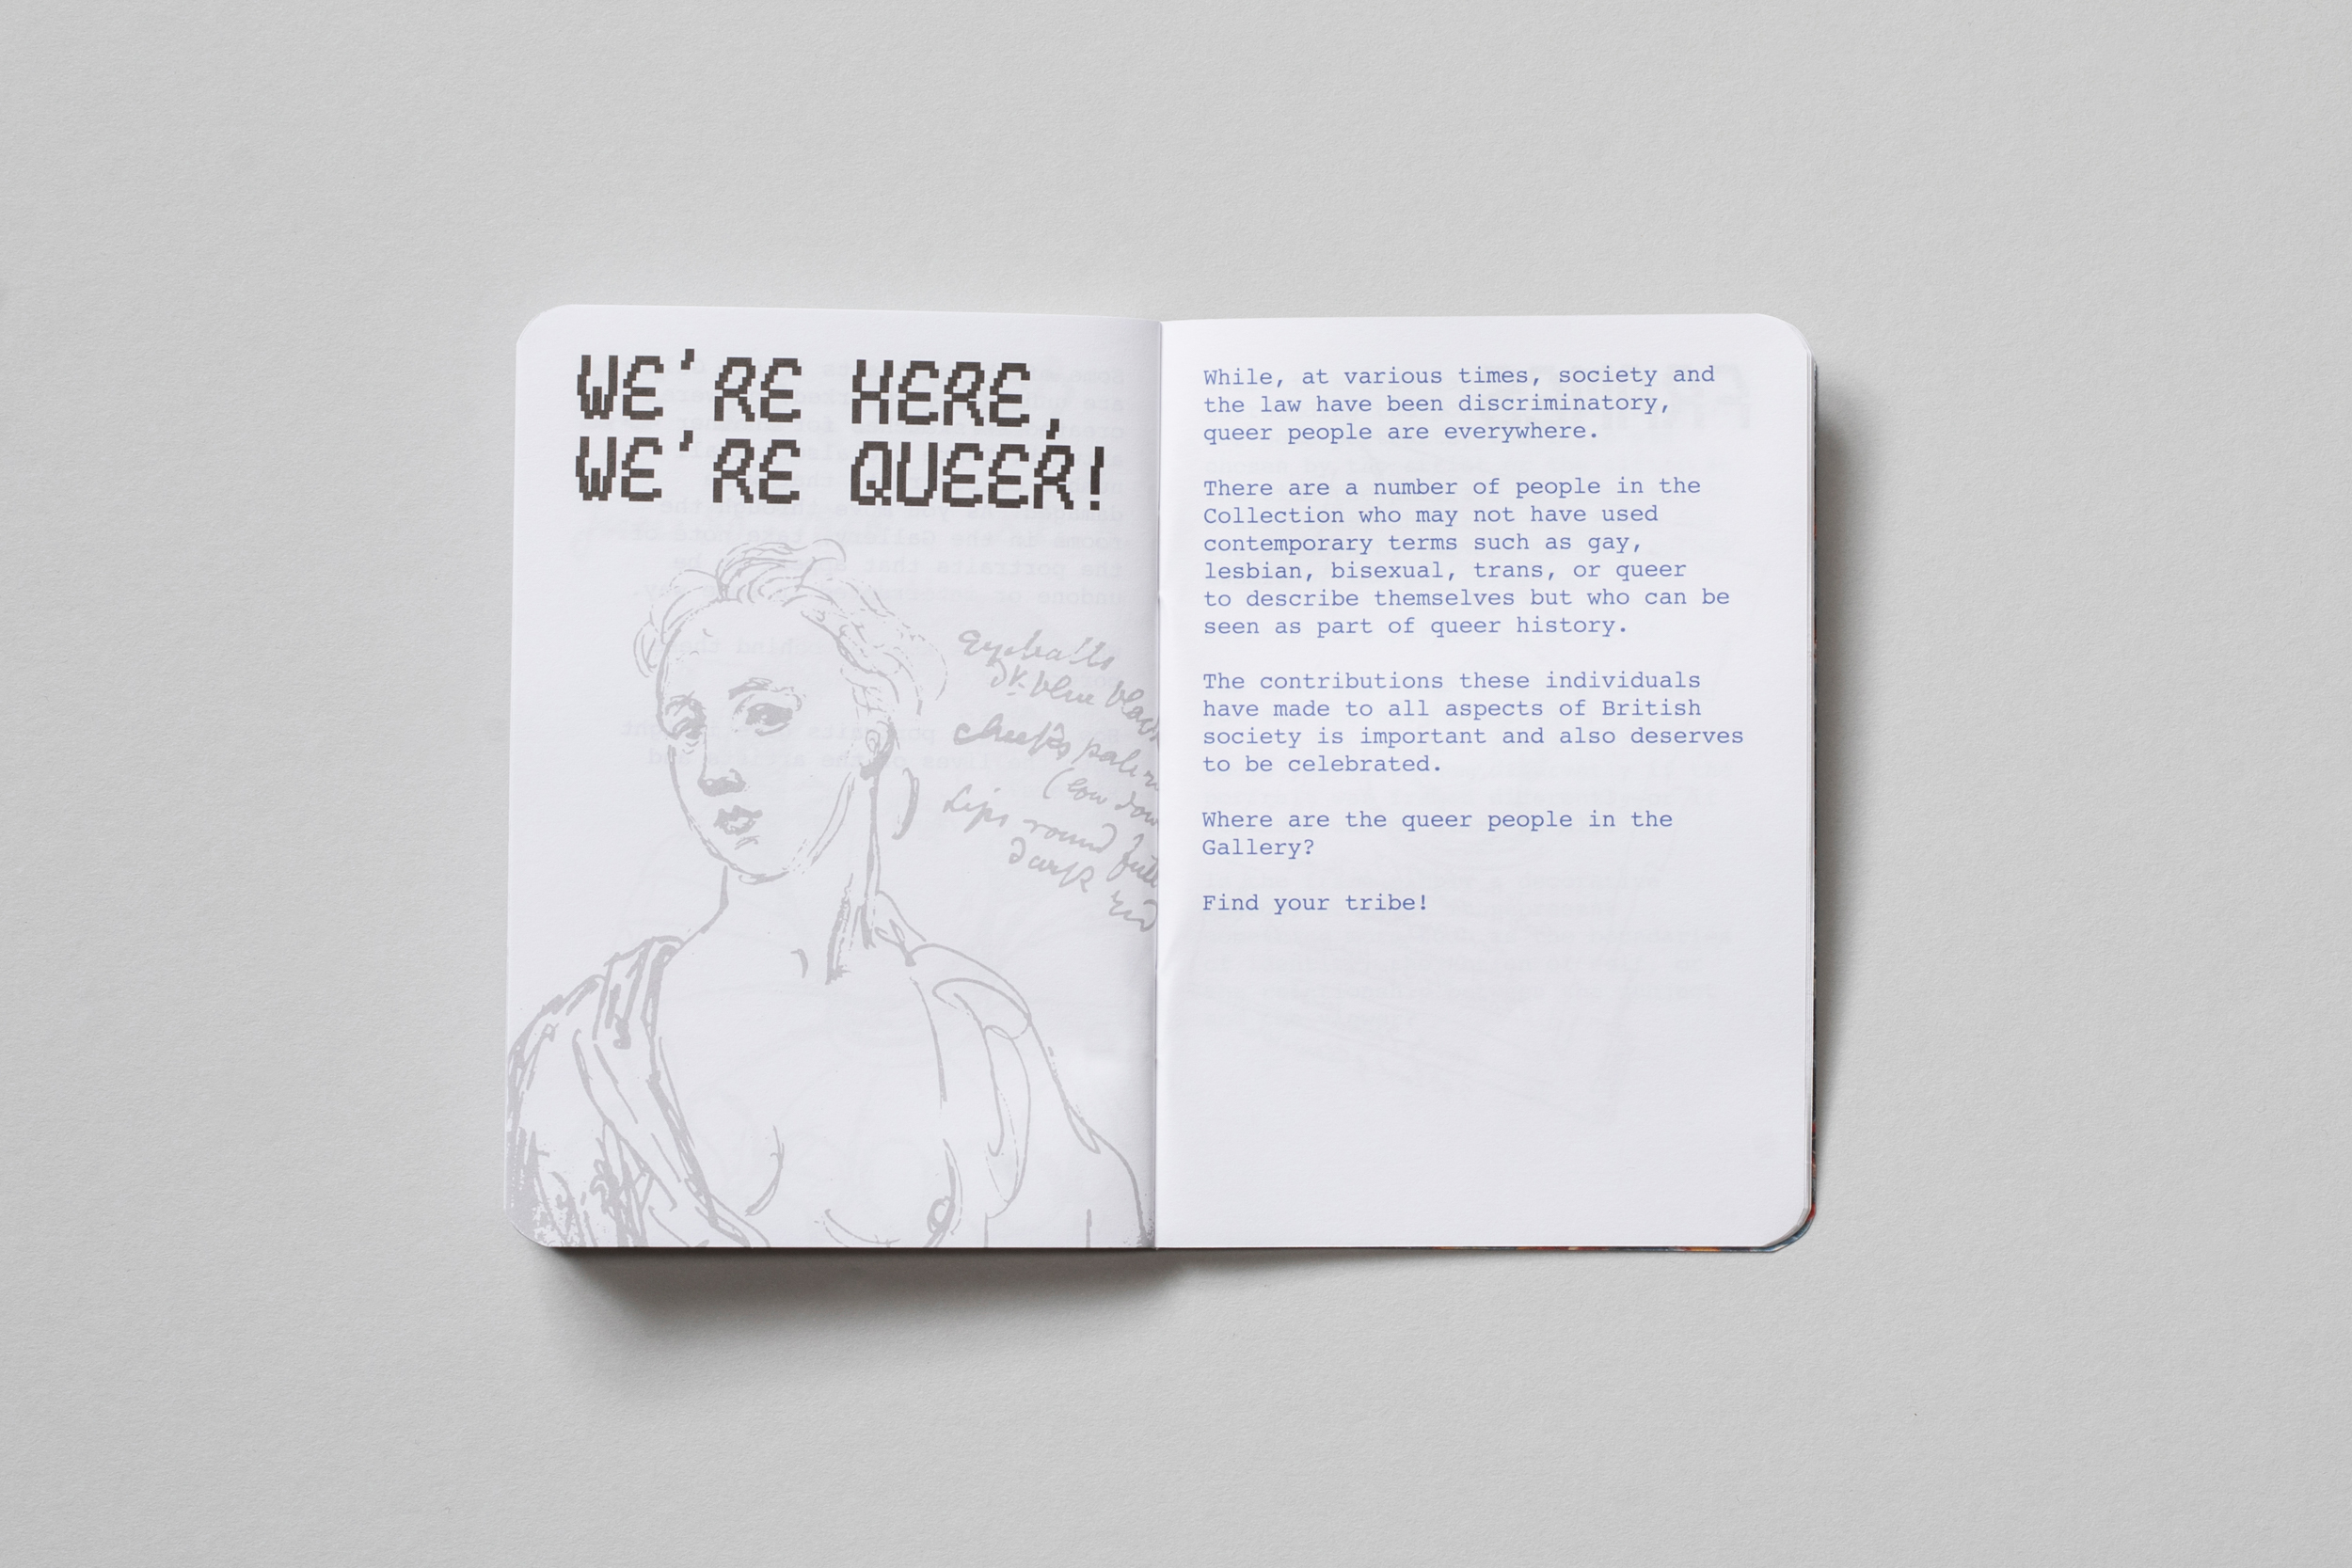 WE'RE HERE,
WE'RE QUEER!
Eyeballs
dk blue black
cheeks pale
(low down
Lips round full
dark red
While, at various times, society and
the law have been discriminatory,
queer people are everywhere.
There are a number of people in the
Collection who may not have used
contemporary terms such as gay,
lesbian, bisexual, trans, or queer
to describe themselves but who can be
seen as part of queer history.
The contributions these individuals
have made to all aspects of British
society is important and also deserves
to be celebrated.
Where are the queer people in the
Gallery?
Find your tribe!